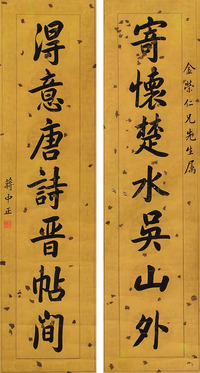 金榮仁兄先生属
寄懷楚水吳山外
得意唐詩晋帖間
蔣中正